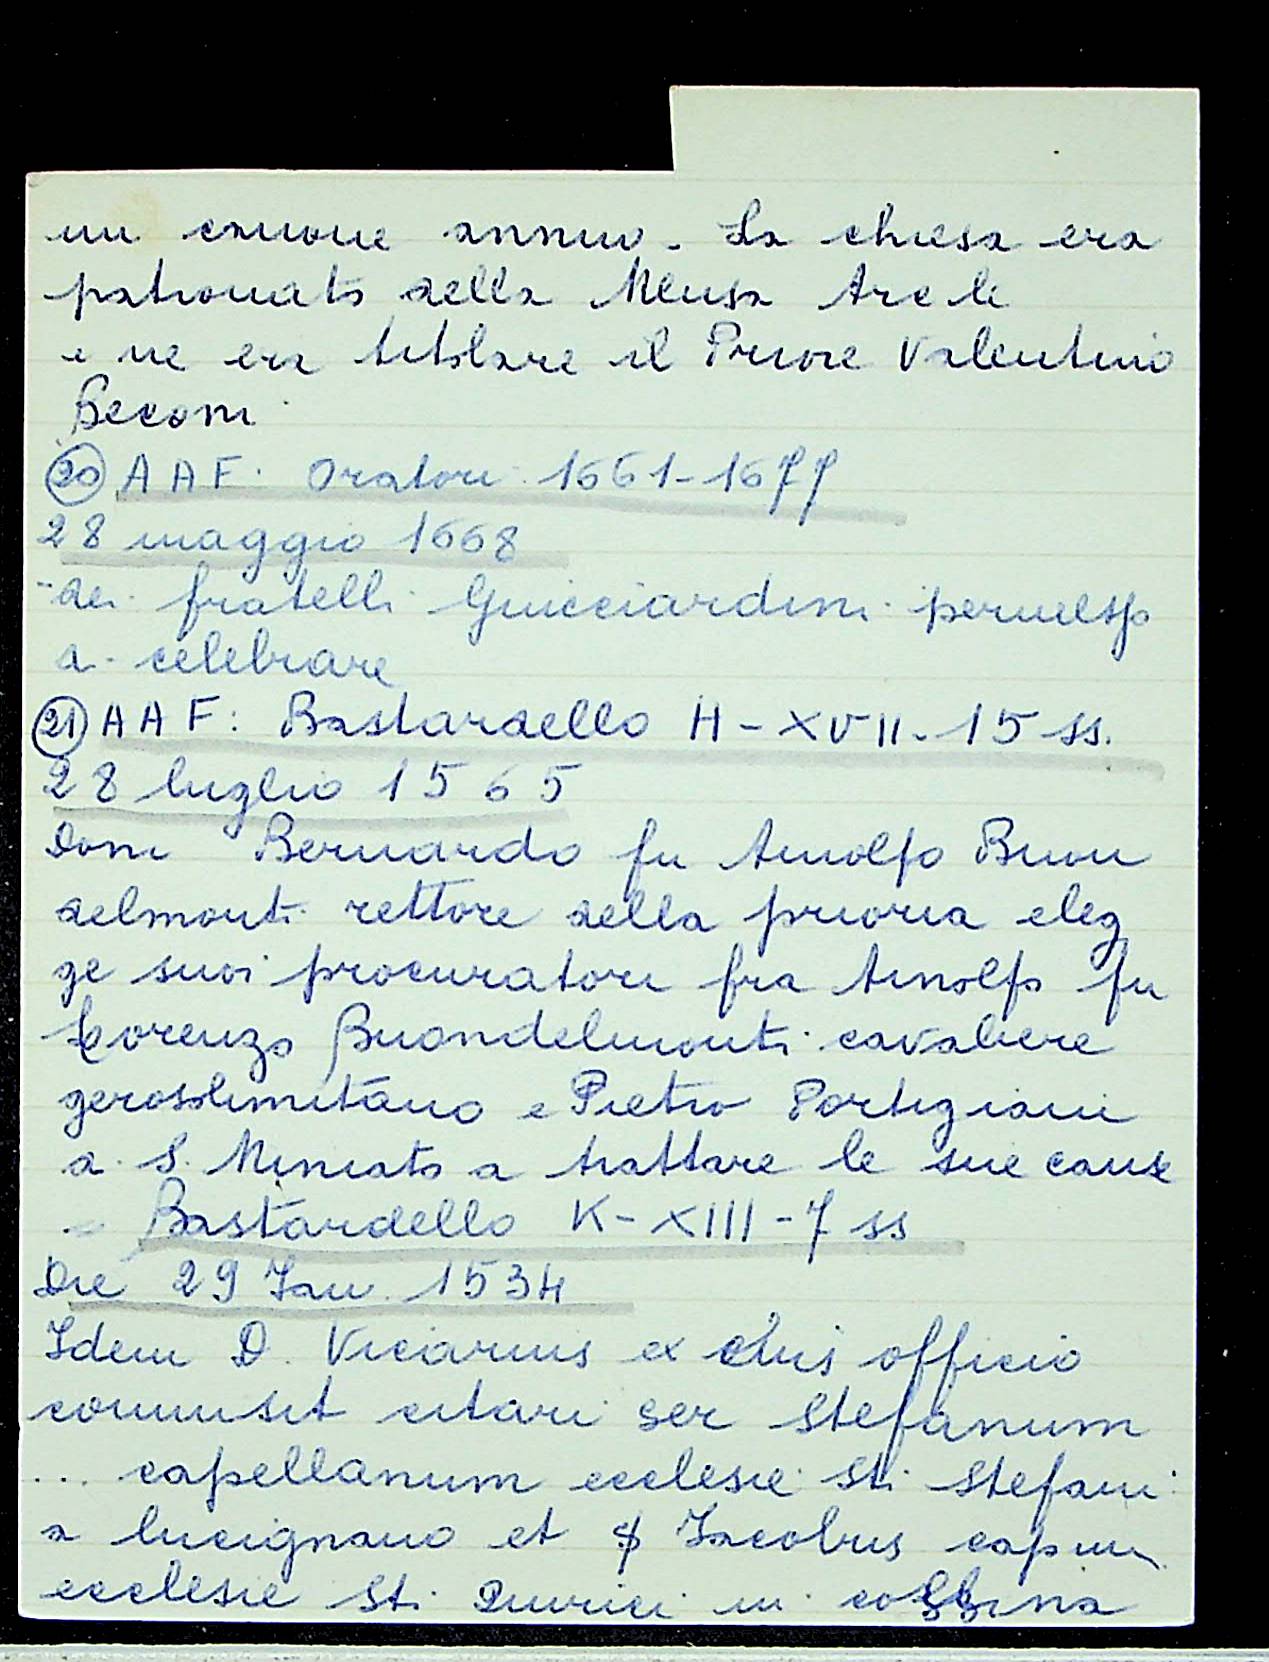 un canone annuo. La chiesa era
patronato della Mensa Arc le
e ne era titolare il Priore Valentino
Becorni
20 AAF: Oratori 1661-1677
28 maggio 1668
- dei fratelli Guicciardini permesso
a celebrare
21 AAF: Bastardello H-XVII-15 ss.
28 luglio 1565
Doni Bernardo fu Arnolfo Buon
delmonti rettore della prioria eleg
ge suoi procuratori fra Arnolfo fu
Lorenzo Buondelmonti cavaliere
gerosolimitano e Pietro Portigiani
a S. Miniato a trattare le sue cause
= Bastardello K-XIII-7 ss
Die 29 Jan. 1534
Idem D. Vicarius ex eius officio
commisit citari ser Stefanum
... capellanum ecclesie Sti Stefani
a Lucignano et Jacobus
ecclesie Sti Quirici in